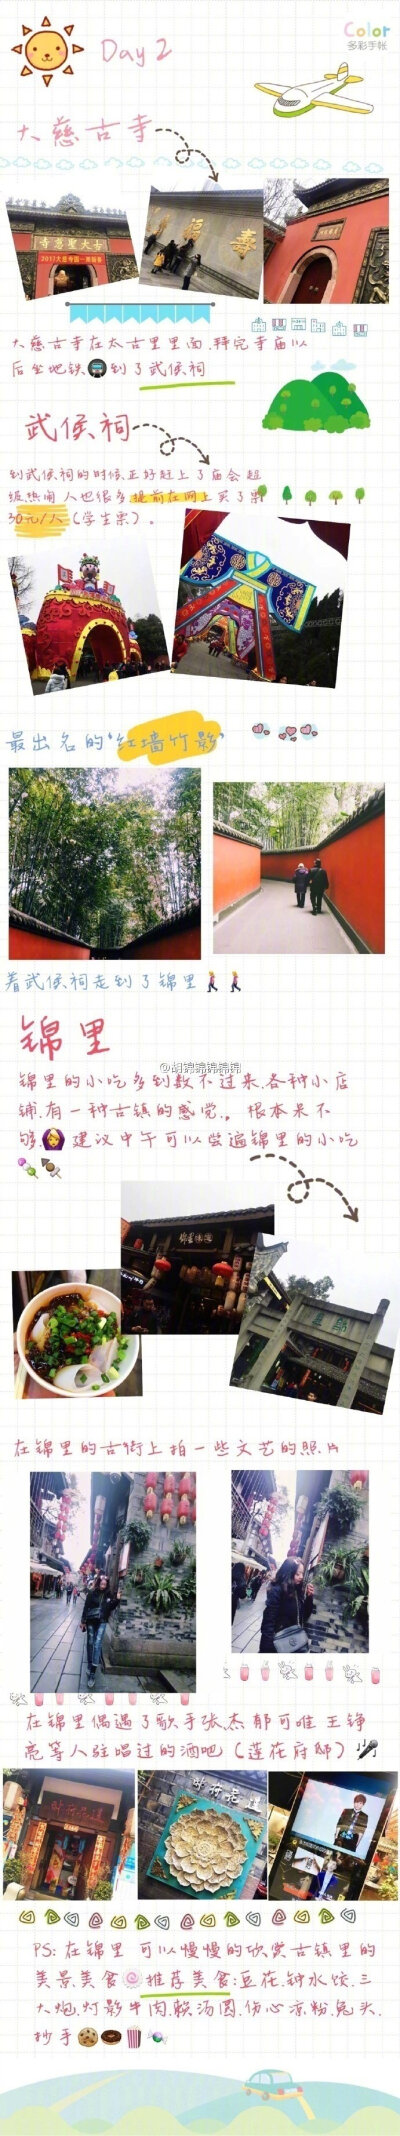 Color
多彩手帐
Day 2
大慈古寺
古大聖慈寺
福
壽
大慈古寺在太古里里面,拜完寺庙以
后坐地铁到了武侯祠
武侯祠
到武侯祠的时候正好赶上了庙会 超
级热闹 人也很多 提前在网上买了票
30元/人 (学生票)。
最出名的“红墙竹影”
着武侯祠走到了锦里
锦里
@胡锦锦锦锦锦
锦里的小吃多到数不过来,各种小店
铺,有一种古镇的感觉。根本呆不
够 建议中午可以尝遍锦里的小吃
錦里
在锦里的古街上拍一些文艺的照片
在锦里偶遇了歌手张杰 郁可唯 王铮
亮等人驻唱过的酒吧 (莲花府邸)
邸府花蓮
邸府花蓮
PS: 在锦里 可以慢慢的欣赏古镇里的
美景,美食 推荐美食:豆花.钟水饺.三
大炮.灯影牛肉.赖汤圆.伤心凉粉.兔头.
抄手